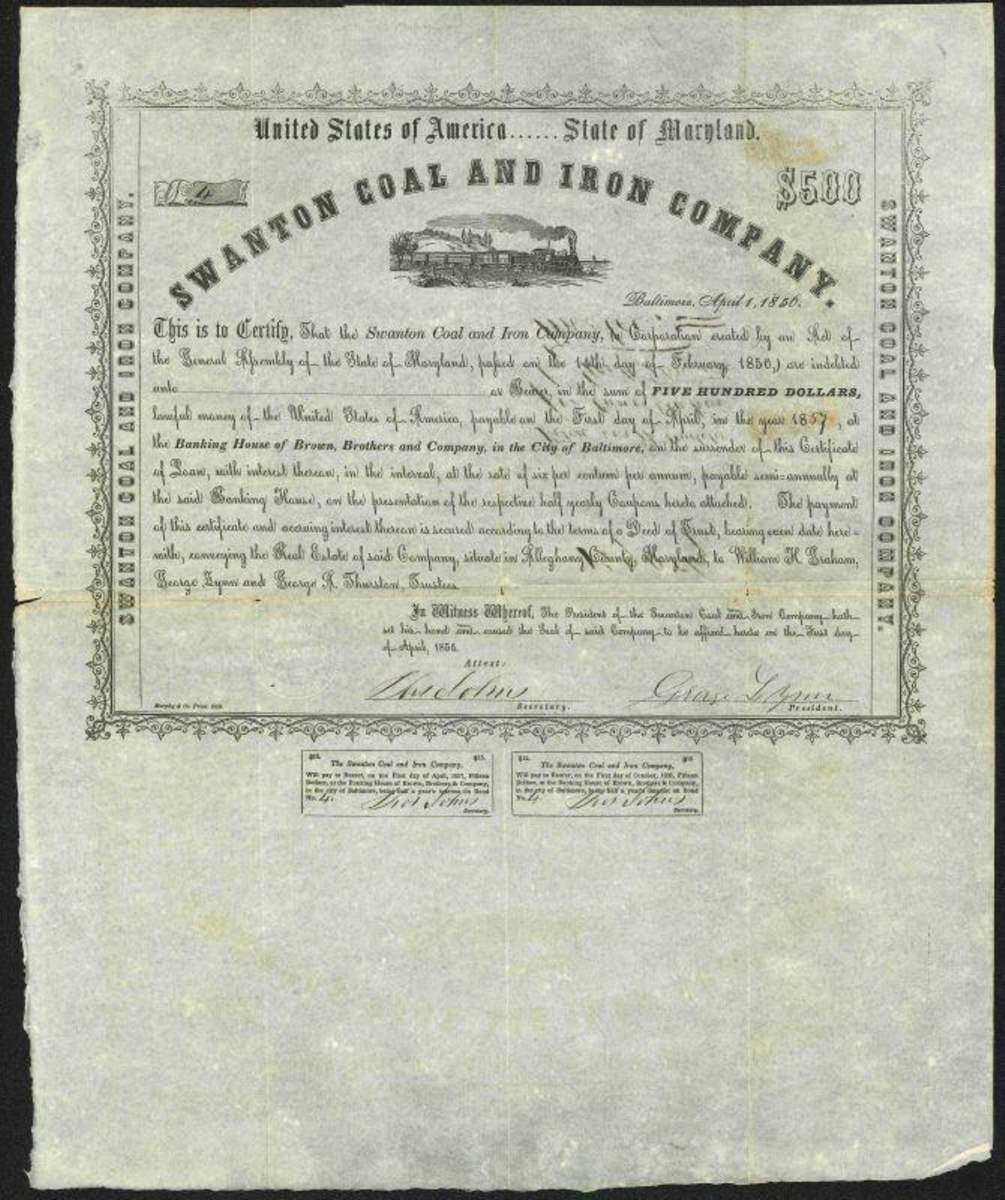 United States of America...... State of Maryland.
4
$500
SWANTON COAL AND IRON COMPANY.
SWANTON COAL AND IRON COMPANY.
SWANTON COAL AND IRON COMPANY.
Baltimore, April 1, 1856.
This is to Certify, That the Swanton Coal and Iron Company, (a Corporation created by an Act of
the General Assembly of the State of Maryland, passed on the day of February, 1856,) are indebted
unto or Bearer, in the sum of FIVE HUNDRED DOLLARS,
lawful money of the United States of America, payable on the First day of April, in the year 1857, at
the Banking House of Brown, Brothers and Company, in the City of Baltimore, on the surrender of this Certificate
of Loan, with interest thereon, in the interval, at the rate of six per centum per annum, payable semi-annually at
the said Banking House, on the presentation of the respective half yearly Coupons hereto attached. The payment
of this certificate and accruing interest thereon is secured according to the terms of a Deed of Trust, bearing even date here-
with, conveying the Real Estate of said Company, situate in Alleghany County, Maryland, to William H. Graham,
George Lynn and George A. Thurston, Trustees.
In Witness Whereof, The President of the Swanton Coal and Iron Company hath
set his hand and caused the Seal of said Company to be affixed hereto on the First day
of April, 1856.
Attest:
Thos Johns
Secretary.
George Lynn
President.
Murphy & Co. Print.
$15.
The Swanton Coal and Iron Company,
Will pay to Bearer, on the First day of April, 1857, Fifteen
Dollars, at the Banking House of Brown, Brothers & Company,
in the city of Baltimore, being half a year's interest on Bond
No. 4. Thos Johns
Secretary.
The Swanton Coal and Iron Company,
Will pay to Bearer, on the First day of October, 1856, Fifteen
Dollars, at the Banking House of Brown, Brothers & Company,
in the city of Baltimore, being half a year's interest on Bond
No. 4 Thos Johns
Secretary.